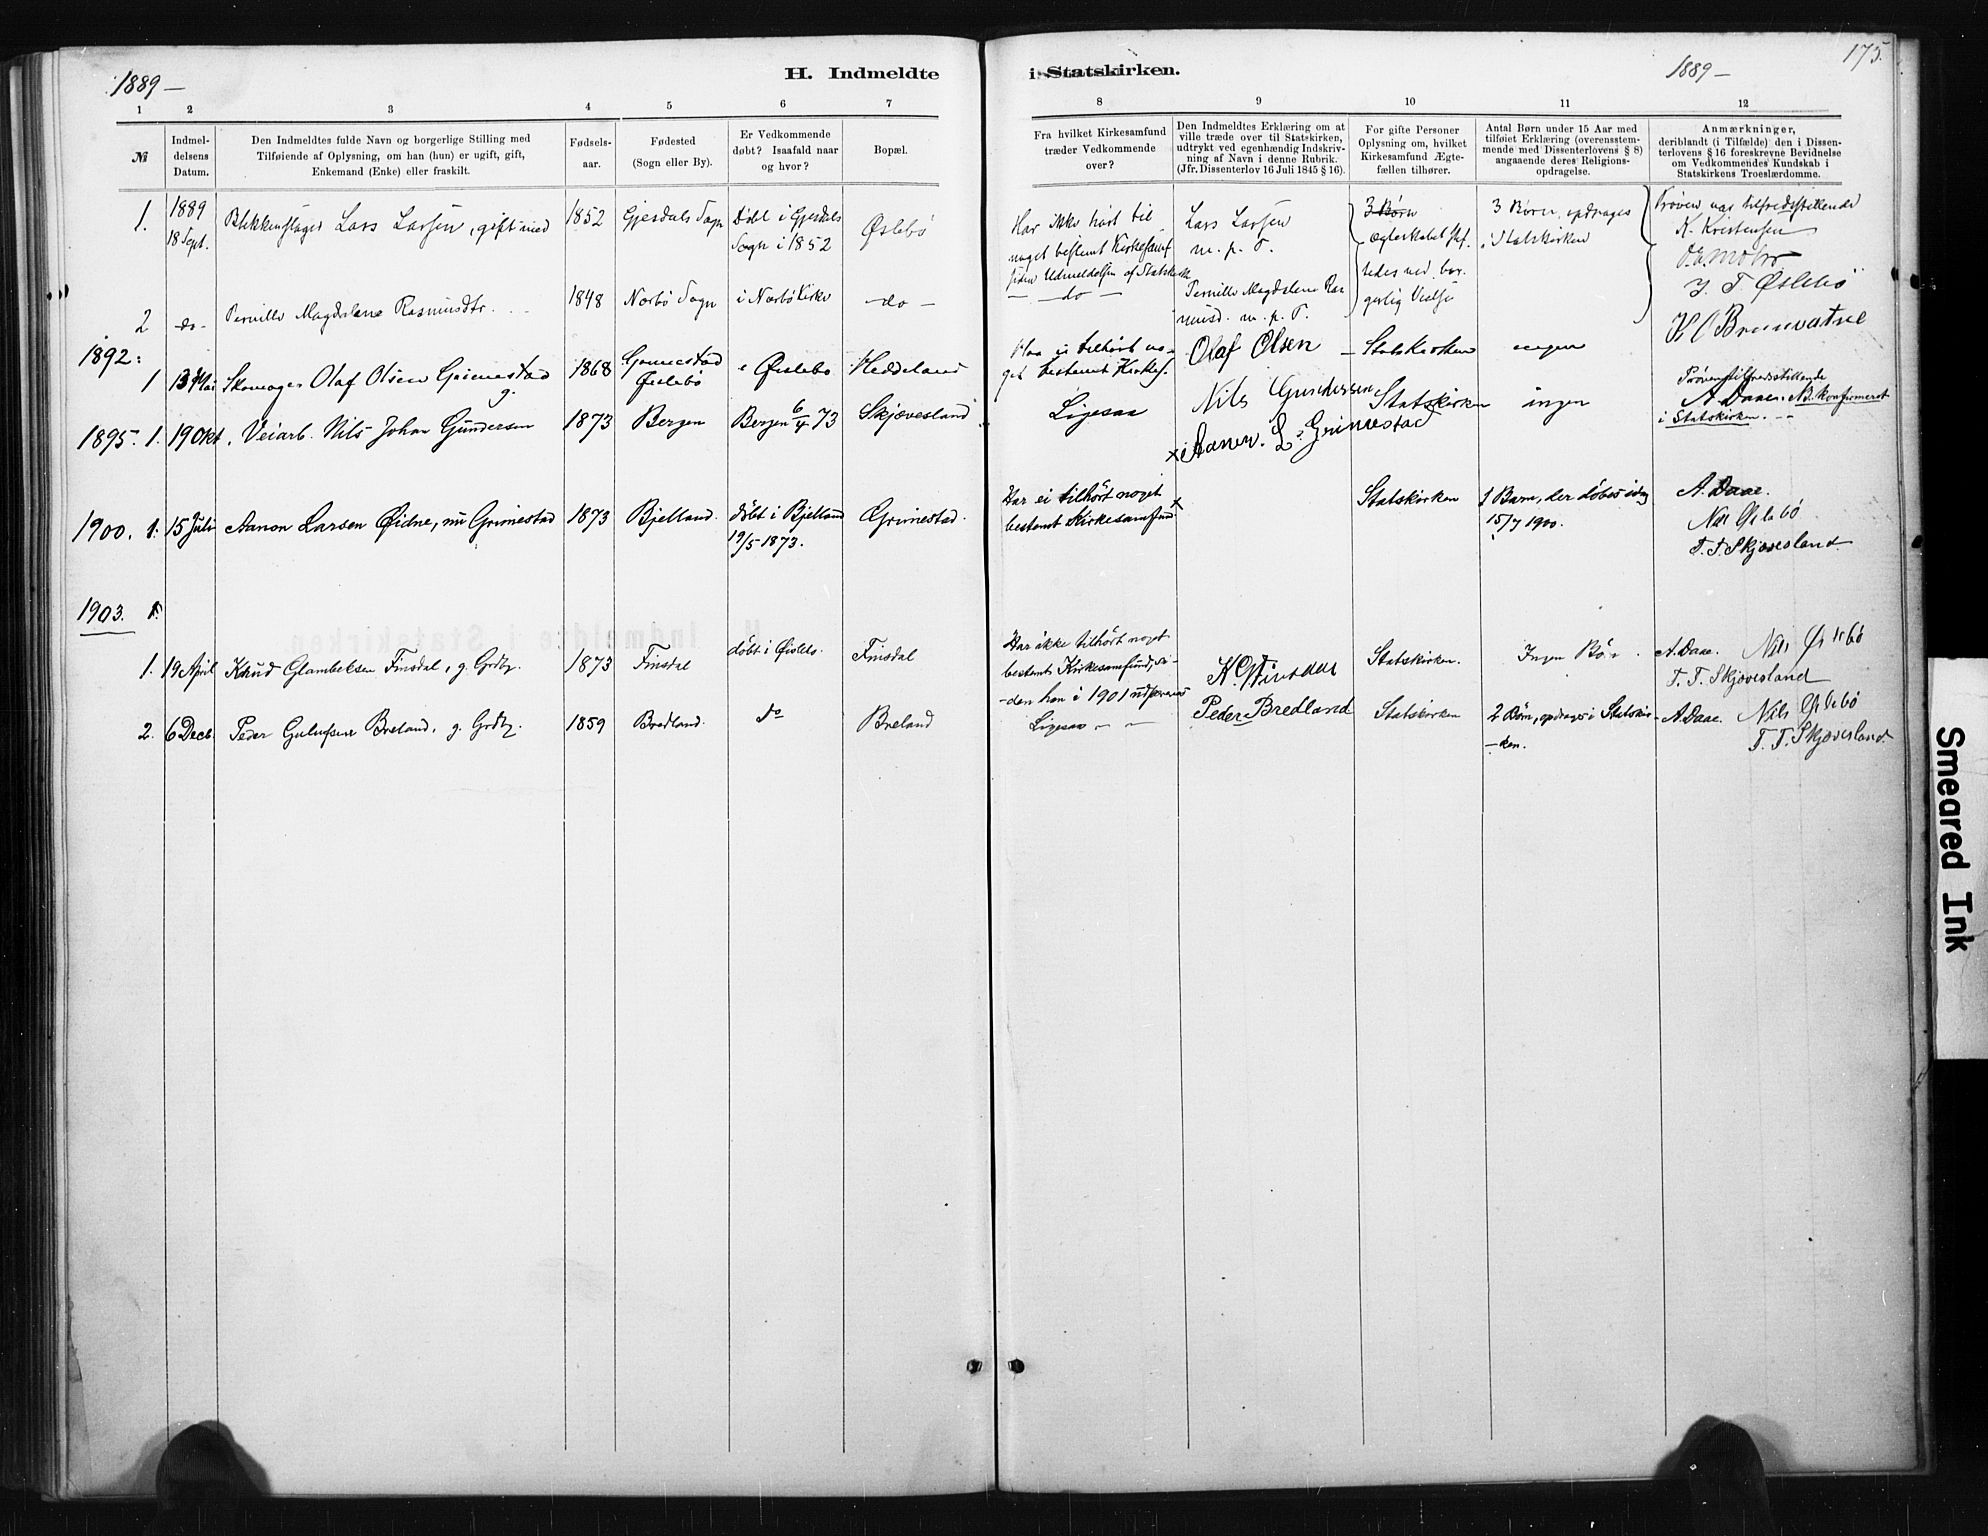 1889 —
H. Indmeldte
i Statskirken.
1889 —
175.
1 2 3 4 5 6 7 8 9 10 11 12
№
Indmel-
delsens
Datum.
Den Indmeldtes fulde Navn og borgerlige Stilling med
Tilføiende af Oplysning, om han (hun) er ugift, gift,
Enkemand (Enke) eller fraskilt.
Fødsels-
aar.
Fødested
(Sogn eller By).
Er Vedkommende
døbt? Isaafald naar
og hvor?
Bopæl.
Fra hvilket Kirkesamfund
træder Vedkommende
over?
Den Indmeldtes Erklæring om at
ville træde over til Statskirken,
udtrykt ved egenhændig Indskriv-
ning af Navn i denne Rubrik.
(Jfr. Dissenterlov 16 Juli 1845 § 16).
For gifte Personer
Oplysning om, hvilket
Kirkesamfund Ægte-
fællen tilhører.
Antal Børn under 15 Aar med
tilføiet Erklæring (overensstem-
mende med Dissenterlovens § 8)
angaaende deres Religions-
opdragelse.
Anmærkninger,
deriblandt (i Tilfælde) den i Dissen-
terlovens § 16 foreskrevne Bevidnelse
om Vedkommendes Kundskab i
Statskirkens Troeslærdomme.
1. 1889
18 Sept.
Blikkenslager Lars Larsen, gift med
1852
Gjesdals Sogn
Døbt i Gjesdals
Sogn i 1852
Øslebø
Har ikke hørt til
noget bestemt Kirkesamf
siden Udmeldelsen af Statskirke
Lars Larsen
m. p. T.
3 Børn
Ægteskabet stif-
tedes ved bor-
gerlig Vielse
3 Børn, opdrages
i Statskirken
Prøven var tilfredsstillende
K. Kristensen
J. T. Øslebø
K O Brunvatne
2 do- Pernille Magdalene Rasmusdtr.
1848
Norbø Sogn
i Norbø Kirke
— do —
— do —
Pernille Magdalene Ras
musd. m. p. T.
1892:
1 13 Mai Skomager Olaf Olsen Grimestad
g.
1868
Øislebø
Øislebø
Heddeland
Olaf Olsen
— Statskirken
ingen
Prøven tilfredsstillende
A Daae. NB. konfirmeret
i Statskirken. - -
1895. 1. 19 Okt. Veiarb. Nils Johan Gundersen
1873
Bergen
Bergen 6/4 73
Skjævesland
Ligesaa
Nils Gundersen
Statskirken
ingen
x Aanon. L. Grimestad
1900. 1. 15 Juli Aanon Larsen Øidne, nu Grimestad
1873
Bjelland.
døbt i Bjelland
19/5 1873.
Grimestad.
Har ei tilhørt noget
bestemt Kirkesamfund x
Statskirken
1 Barn, der døbes idag
15/7 1900.
A. Daae.
Nils Øslebø
T. T. Skjævesland.
1903.
1. 19 April Knud Glambeksen Finsdal, g. Grdbr.
1873
Finsdal
døbt i Øislebø.
Finsdal
Har ikke tilhørt noget
bestemt Kirkesamfund, si-
-den han i 1901
K G Finsdal
Statskirken.
Ingen Børn.
A. Daae. Nils Øslebø
T. T. Skjævesland
2. 6 Decb. Peder Gulufsen Breland, g. Grdbr.
1859
Bredland.
do
Breland
Ligesaa - -
Peder Bredland
Statskirken
2 Børn, opdrages i Statskir-
-ken.
A. Daae. Nils Øslebø
T. T. Skjævesland.
Smeared Ink